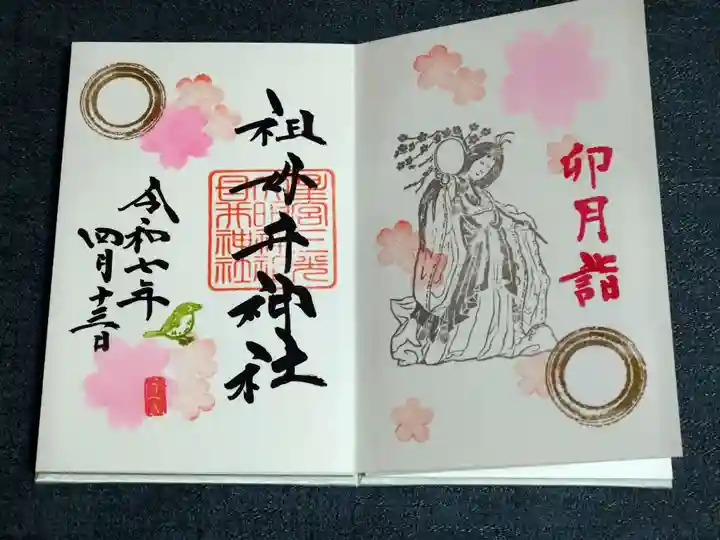 卯月詣
祖母井神社
令和七年
四月十三日